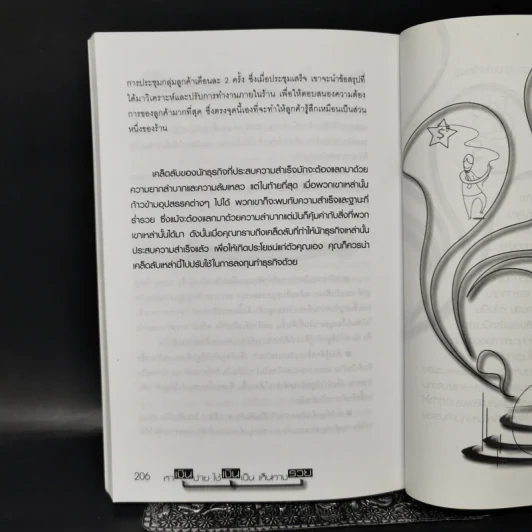 การประชุมกลุ่มลูกค้าเดือนละ 2 ครั้ง ซึ่งเมื่อประชุมเสร็จ เขาจะนำข้อสรุปที่
ได้มาวิเคราะห์และปรับการทำงานภายในร้าน เพื่อให้ตอบสนองความต้อง
การของลูกค้ามากที่สุด ซึ่งตรงจุดนี้เองที่จะทำให้ลูกค้ารู้สึกเหมือนเป็นส่วน
หนึ่งของร้าน
เคล็ดลับของนักธุรกิจที่ประสบความสำเร็จมักจะต้องแลกมาด้วย
ความยากลำบากและความล้มเหลว แต่ในท้ายที่สุด เมื่อพวกเขาเหล่านั้น
ก้าวข้ามอุปสรรคต่างๆ ไปได้ พวกเขาก็จะพบกับความสำเร็จและฐานะที่
ร่ำรวย ซึ่งแม้จะต้องแลกมาด้วยความลำบากแต่มันก็คุ้มค่ากับสิ่งที่พวก
เขาเหล่านั้นได้มา ดังนั้นเมื่อคุณทราบถึงเคล็ดลับที่ทำให้นักธุรกิจเหล่านั้น
ประสบความสำเร็จแล้ว เพื่อให้เกิดประโยชน์แก่ตัวคุณเอง คุณก็ควรนำ
เคล็ดลับเหล่านี้ไปปรับใช้ในการลงทุนทำธุรกิจด้วย
$
206 หาเงินง่าย ใช้เงินเป็น เส้นทางรวย